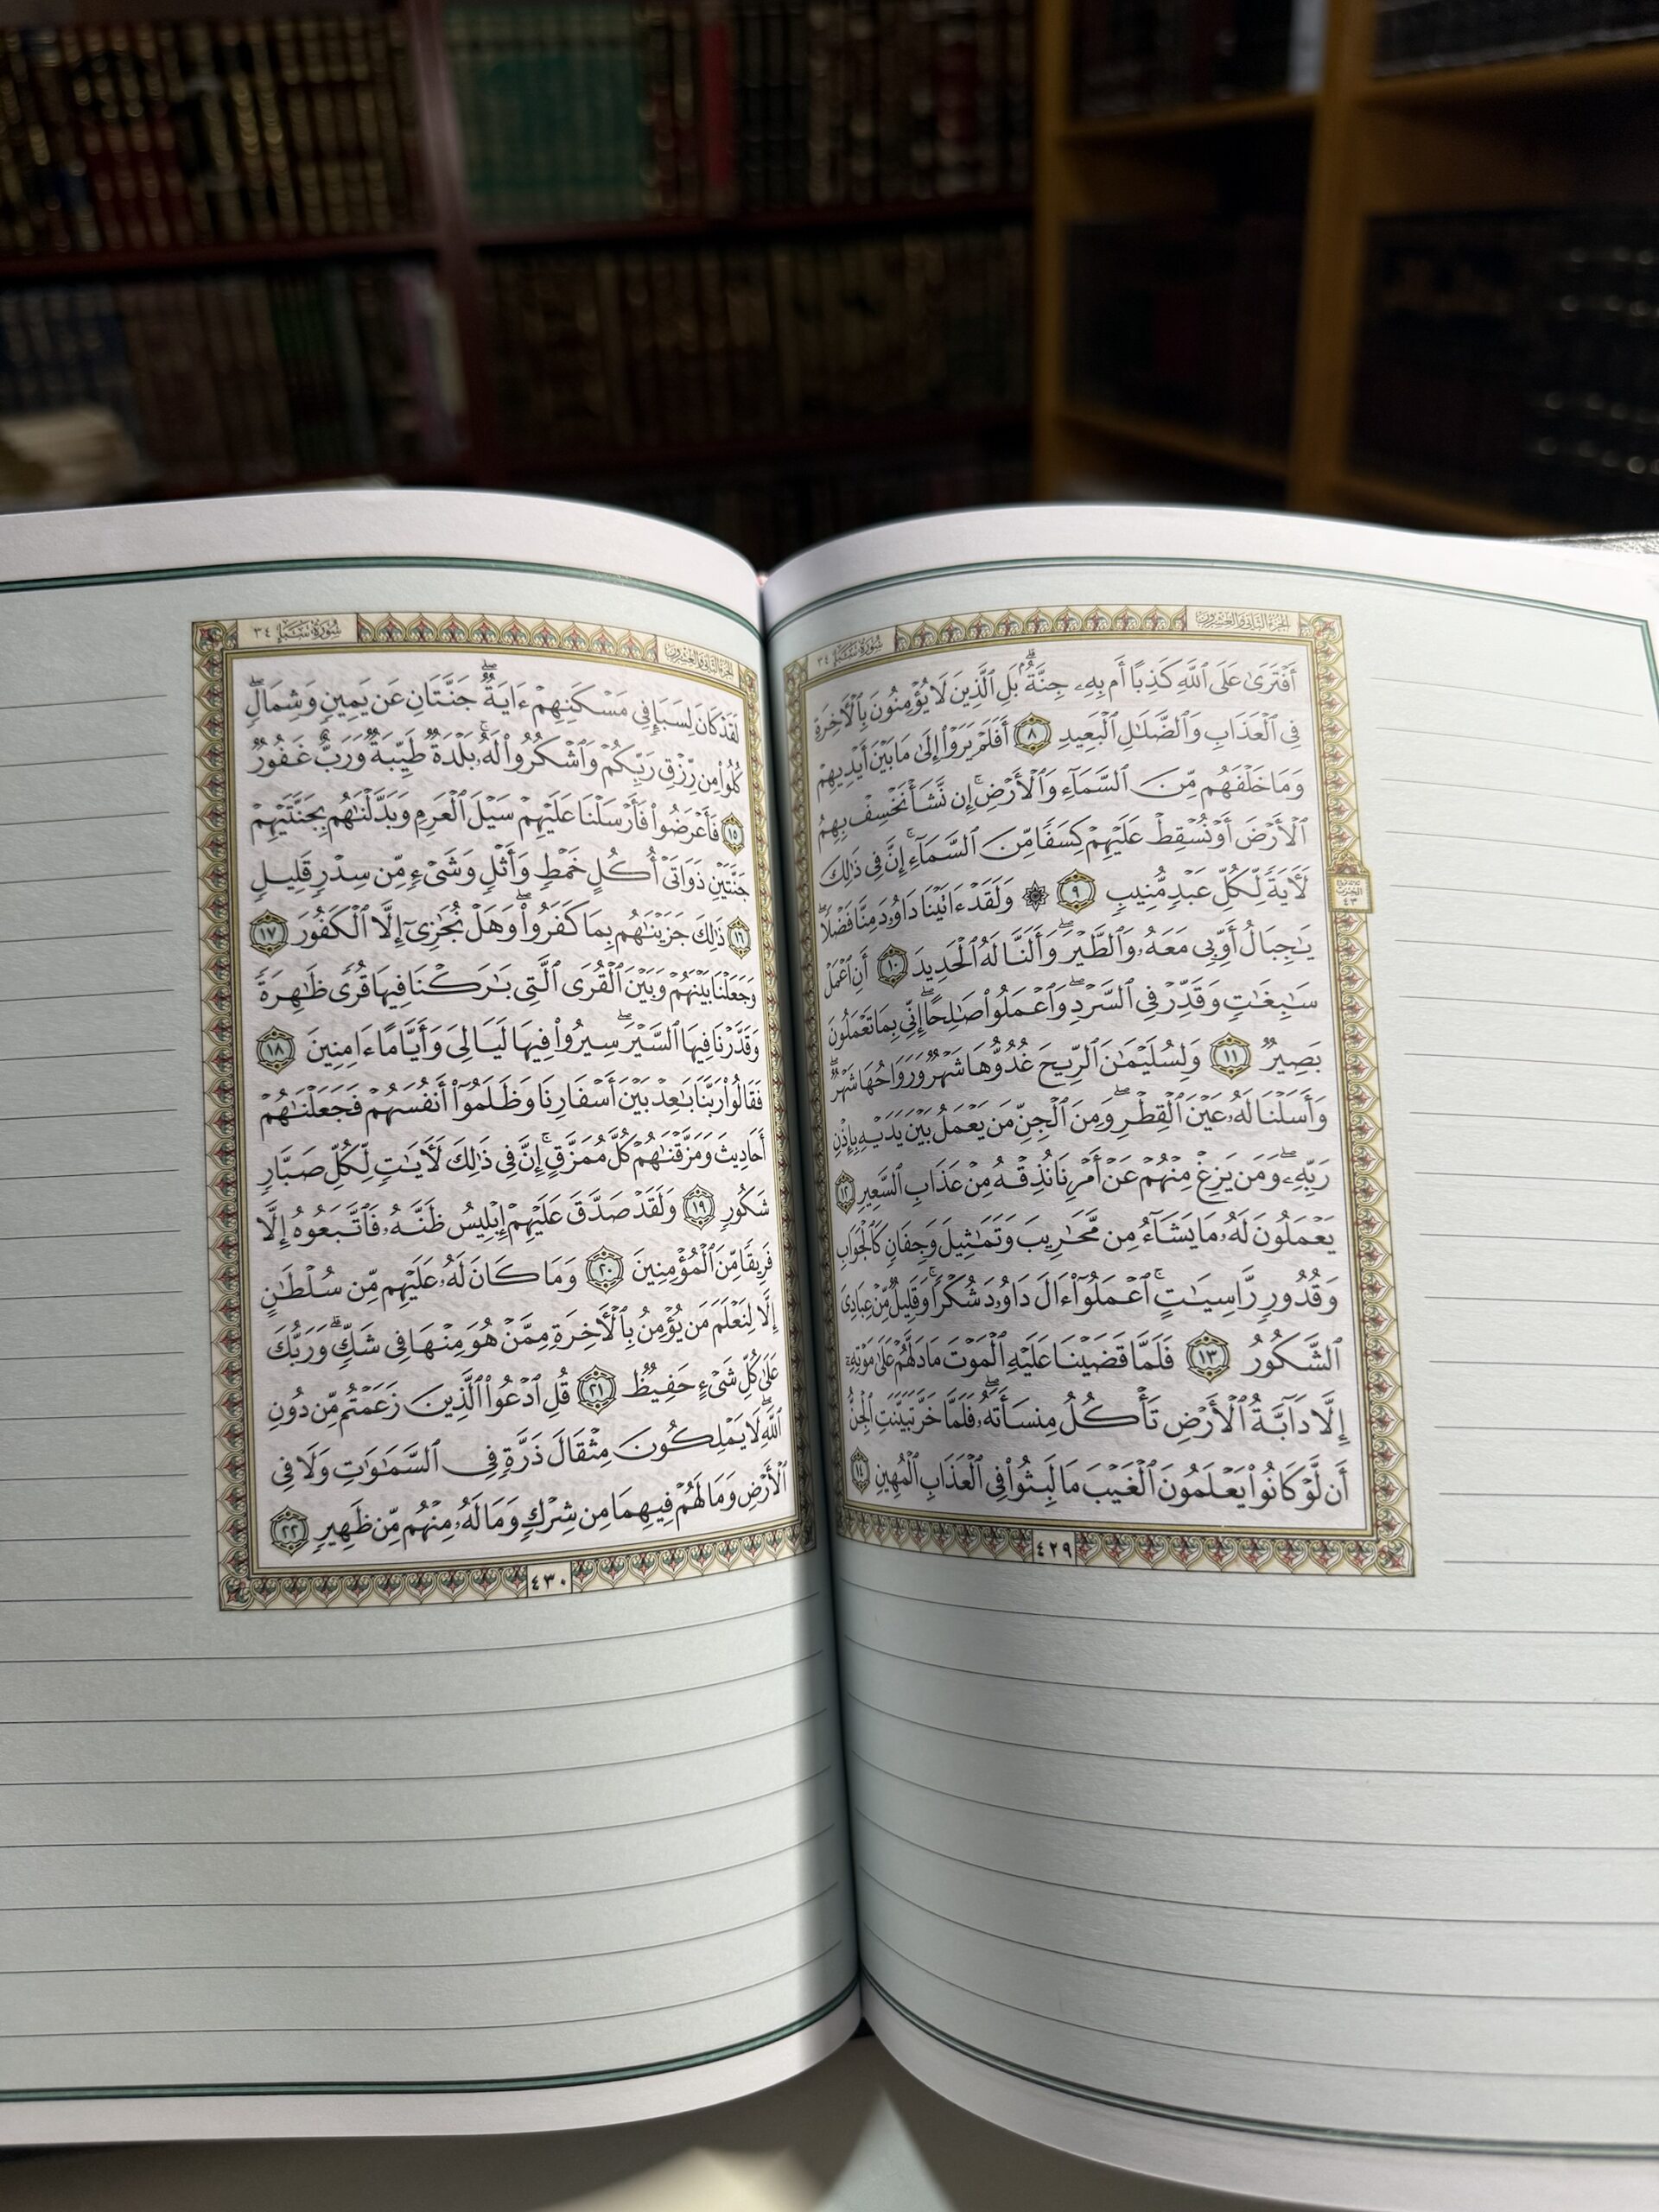 الجزء الثاني والعشرون
سورة سبأ ٣٤
أَفْتَرَىٰ عَلَى ٱللَّهِ كَذِبًا أَم بِهِۦ جِنَّةٌۢ ۗ بَلِ ٱلَّذِينَ لَا يُؤْمِنُونَ بِٱلْـَٔاخِرَةِ
فِى ٱلْعَذَابِ وَٱلضَّلَـٰلِ ٱلْبَعِيدِ ٨ أَفَلَمْ يَرَوْا۟ إِلَىٰ مَا بَيْنَ أَيْدِيهِمْ
وَمَا خَلْفَهُم مِّنَ ٱلسَّمَآءِ وَٱلْأَرْضِ ۚ إِن نَّشَأْ نَخْسِفْ بِهِمُ
ٱلْأَرْضَ أَوْ نُسْقِطْ عَلَيْهِمْ كِسَفًا مِّنَ ٱلسَّمَآءِ ۚ إِنَّ فِى ذَٰلِكَ
لَـَٔايَةً لِّكُلِّ عَبْدٍ مُّنِيبٍ ٩ ۞ وَلَقَدْ ءَاتَيْنَا دَاوُۥدَ مِنَّا فَضْلًا ۖ
يَـٰجِبَالُ أَوِّبِى مَعَهُۥ وَٱلطَّيْرَ ۖ وَأَلَنَّا لَهُ ٱلْحَدِيدَ ١٠ أَنِ ٱعْمَلْ
سَـٰبِغَـٰتٍ وَقَدِّرْ فِى ٱلسَّرْدِ ۖ وَٱعْمَلُوا۟ صَـٰلِحًا ۖ إِنِّى بِمَا تَعْمَلُونَ
بَصِيرٌ ١١ وَلِسُلَيْمَـٰنَ ٱلرِّيحَ غُدُوُّهَا شَهْرٌ وَرَوَاحُهَا شَهْرٌ ۖ
وَأَسَلْنَا لَهُۥ عَيْنَ ٱلْقِطْرِ ۖ وَمِنَ ٱلْجِنِّ مَن يَعْمَلُ بَيْنَ يَدَيْهِ بِإِذْنِ
رَبِّهِۦ ۖ وَمَن يَزِغْ مِنْهُمْ عَنْ أَمْرِنَا نُذِقْهُ مِنْ عَذَابِ ٱلسَّعِيرِ ١٢
يَعْمَلُونَ لَهُۥ مَا يَشَآءُ مِن مَّحَـٰرِيبَ وَتَمَـٰثِيلَ وَجِفَانٍ كَٱلْجَوَابِ
وَقُدُورٍ رَّاسِيَـٰتٍ ۚ ٱعْمَلُوٓا۟ ءَالَ دَاوُۥدَ شُكْرًا ۚ وَقَلِيلٌ مِّنْ عِبَادِىَ
ٱلشَّكُورُ ١٣ فَلَمَّا قَضَيْنَا عَلَيْهِ ٱلْمَوْتَ مَا دَلَّهُمْ عَلَىٰ مَوْتِهِۦٓ
إِلَّا دَآبَّةُ ٱلْأَرْضِ تَأْكُلُ مِنسَأَتَهُۥ ۖ فَلَمَّا خَرَّ تَبَيَّنَتِ ٱلْجِنُّ
أَن لَّوْ كَانُوا۟ يَعْلَمُونَ ٱلْغَيْبَ مَا لَبِثُوا۟ فِى ٱلْعَذَابِ ٱلْمُهِينِ ١٤
٤٢٩
الحزب
٤٣
الجزء الثاني والعشرون
سورة سبأ ٣٤
لَقَدْ كَانَ لِسَبَإٍ فِى مَسْكَنِهِمْ ءَايَةٌ ۖ جَنَّتَانِ عَن يَمِينٍ وَشِمَالٍ ۖ
كُلُوا۟ مِن رِّزْقِ رَبِّكُمْ وَٱشْكُرُوا۟ لَهُۥ ۚ بَلْدَةٌ طَيِّبَةٌ وَرَبٌّ غَفُورٌ
١٥ فَأَعْرَضُوا۟ فَأَرْسَلْنَا عَلَيْهِمْ سَيْلَ ٱلْعَرِمِ وَبَدَّلْنَـٰهُم بِجَنَّتَيْهِمْ
جَنَّتَيْنِ ذَوَاتَىْ أُكُلٍ خَمْطٍ وَأَثْلٍ وَشَىْءٍ مِّن سِدْرٍ قَلِيلٍ
١٦ ذَٰلِكَ جَزَيْنَـٰهُم بِمَا كَفَرُوا۟ ۖ وَهَلْ نُجَـٰزِىٓ إِلَّا ٱلْكَفُورَ ١٧
وَجَعَلْنَا بَيْنَهُمْ وَبَيْنَ ٱلْقُرَى ٱلَّتِى بَـٰرَكْنَا فِيهَا قُرًى ظَـٰهِرَةً
وَقَدَّرْنَا فِيهَا ٱلسَّيْرَ ۖ سِيرُوا۟ فِيهَا لَيَالِىَ وَأَيَّامًا ءَامِنِينَ ١٨
فَقَالُوا۟ رَبَّنَا بَـٰعِدْ بَيْنَ أَسْفَارِنَا وَظَلَمُوٓا۟ أَنفُسَهُمْ فَجَعَلْنَـٰهُمْ
أَحَادِيثَ وَمَزَّقْنَـٰهُمْ كُلَّ مُمَزَّقٍ ۚ إِنَّ فِى ذَٰلِكَ لَـَٔايَـٰتٍ لِّكُلِّ صَبَّارٍ
شَكُورٍ ١٩ وَلَقَدْ صَدَّقَ عَلَيْهِمْ إِبْلِيسُ ظَنَّهُۥ فَٱتَّبَعُوهُ إِلَّا
فَرِيقًا مِّنَ ٱلْمُؤْمِنِينَ ٢٠ وَمَا كَانَ لَهُۥ عَلَيْهِم مِّن سُلْطَـٰنٍ
إِلَّا لِنَعْلَمَ مَن يُؤْمِنُ بِٱلْـَٔاخِرَةِ مِمَّنْ هُوَ مِنْهَا فِى شَكٍّ ۗ وَرَبُّكَ
عَلَىٰ كُلِّ شَىْءٍ حَفِيظٌ ٢١ قُلِ ٱدْعُوا۟ ٱلَّذِينَ زَعَمْتُم مِّن دُونِ
ٱللَّهِ ۖ لَا يَمْلِكُونَ مِثْقَالَ ذَرَّةٍ فِى ٱلسَّمَـٰوَٰتِ وَلَا فِى
ٱلْأَرْضِ وَمَا لَهُمْ فِيهِمَا مِن شِرْكٍ وَمَا لَهُۥ مِنْهُم مِّن ظَهِيرٍ ٢٢
٤٣٠